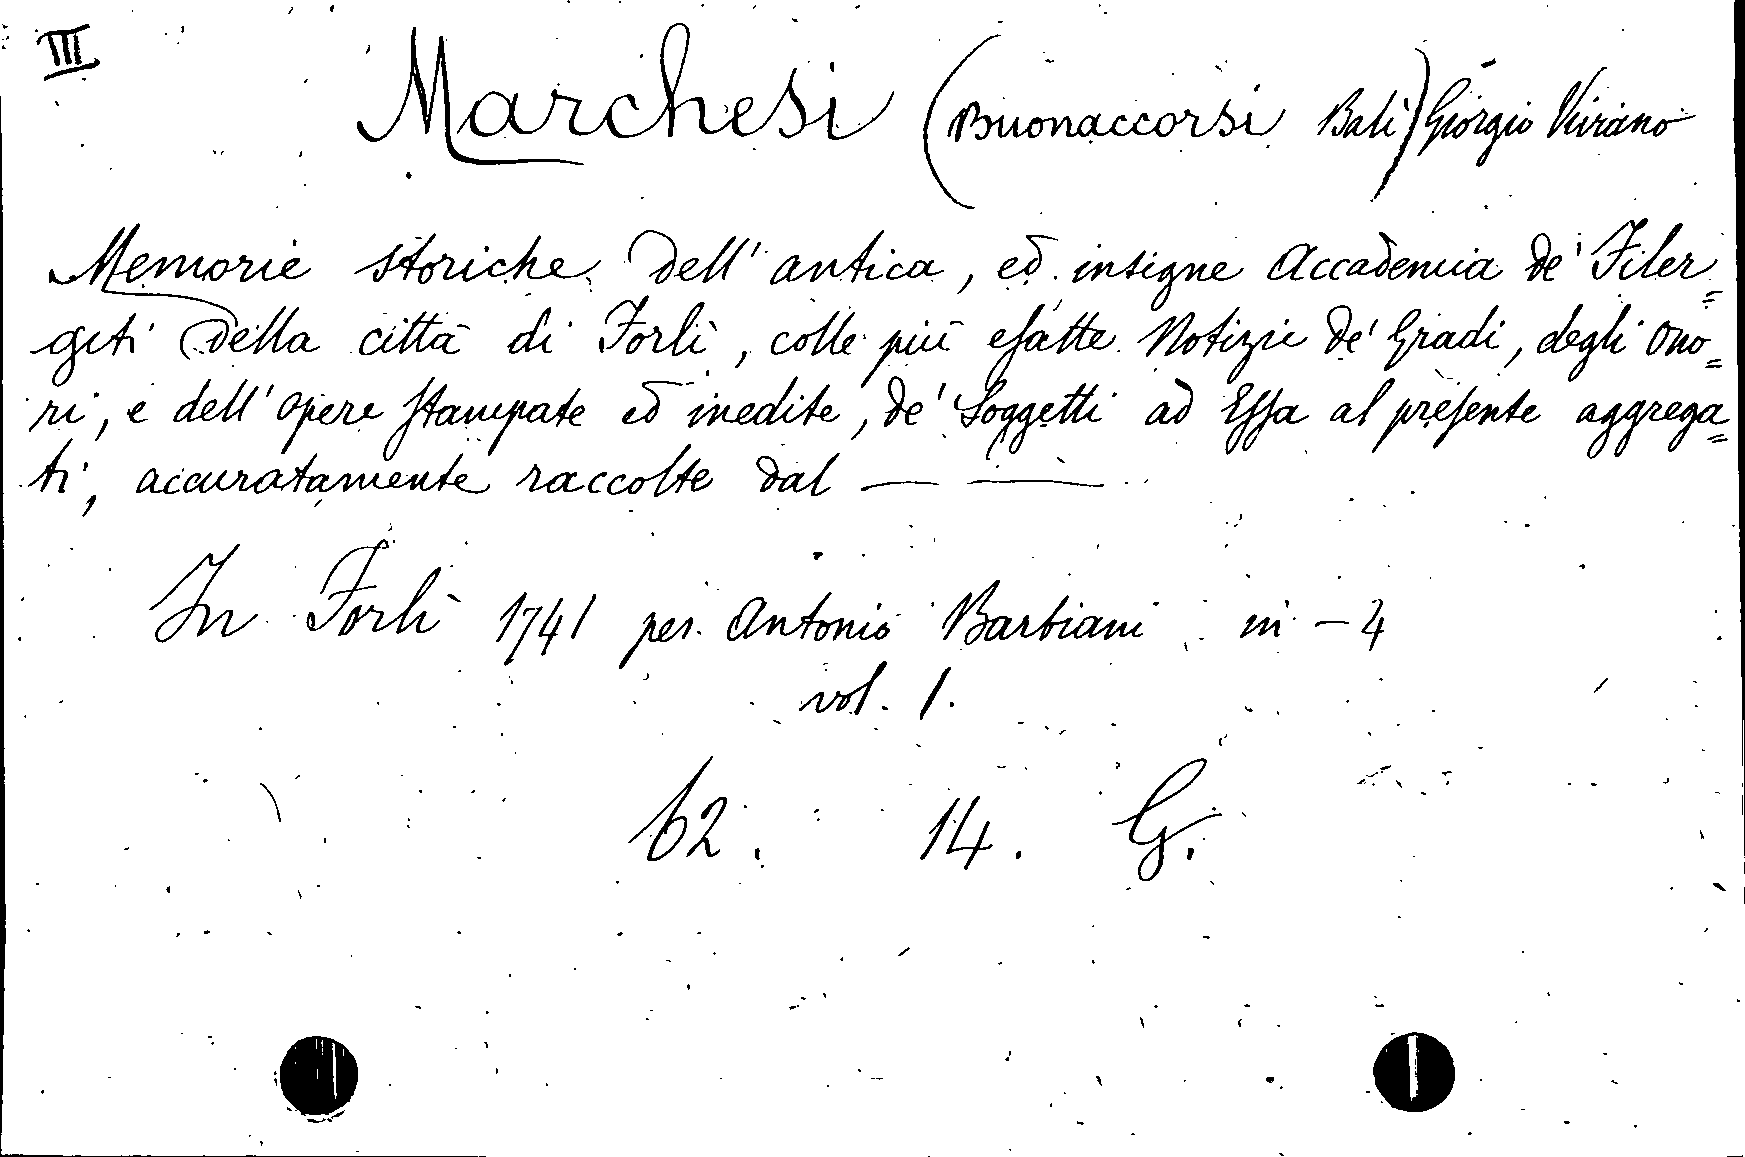 III
Marchesi (Buonaccorsi Balì) Giorgio Viviano
Memorie storiche dell' antica, ed insigne Accademia de' Filer=
geti della città di Forlì, colle più esatte Notizie de' Gradi, degli Ono=
ri, e dell' opere stampate ed inedite, de' Soggetti ad Essa al presente aggrega=
ti, accuratamente raccolte dal — —
In Forlì 1741 per Antonio Barbiani in - 4
vol. 1.
62. 14. G.